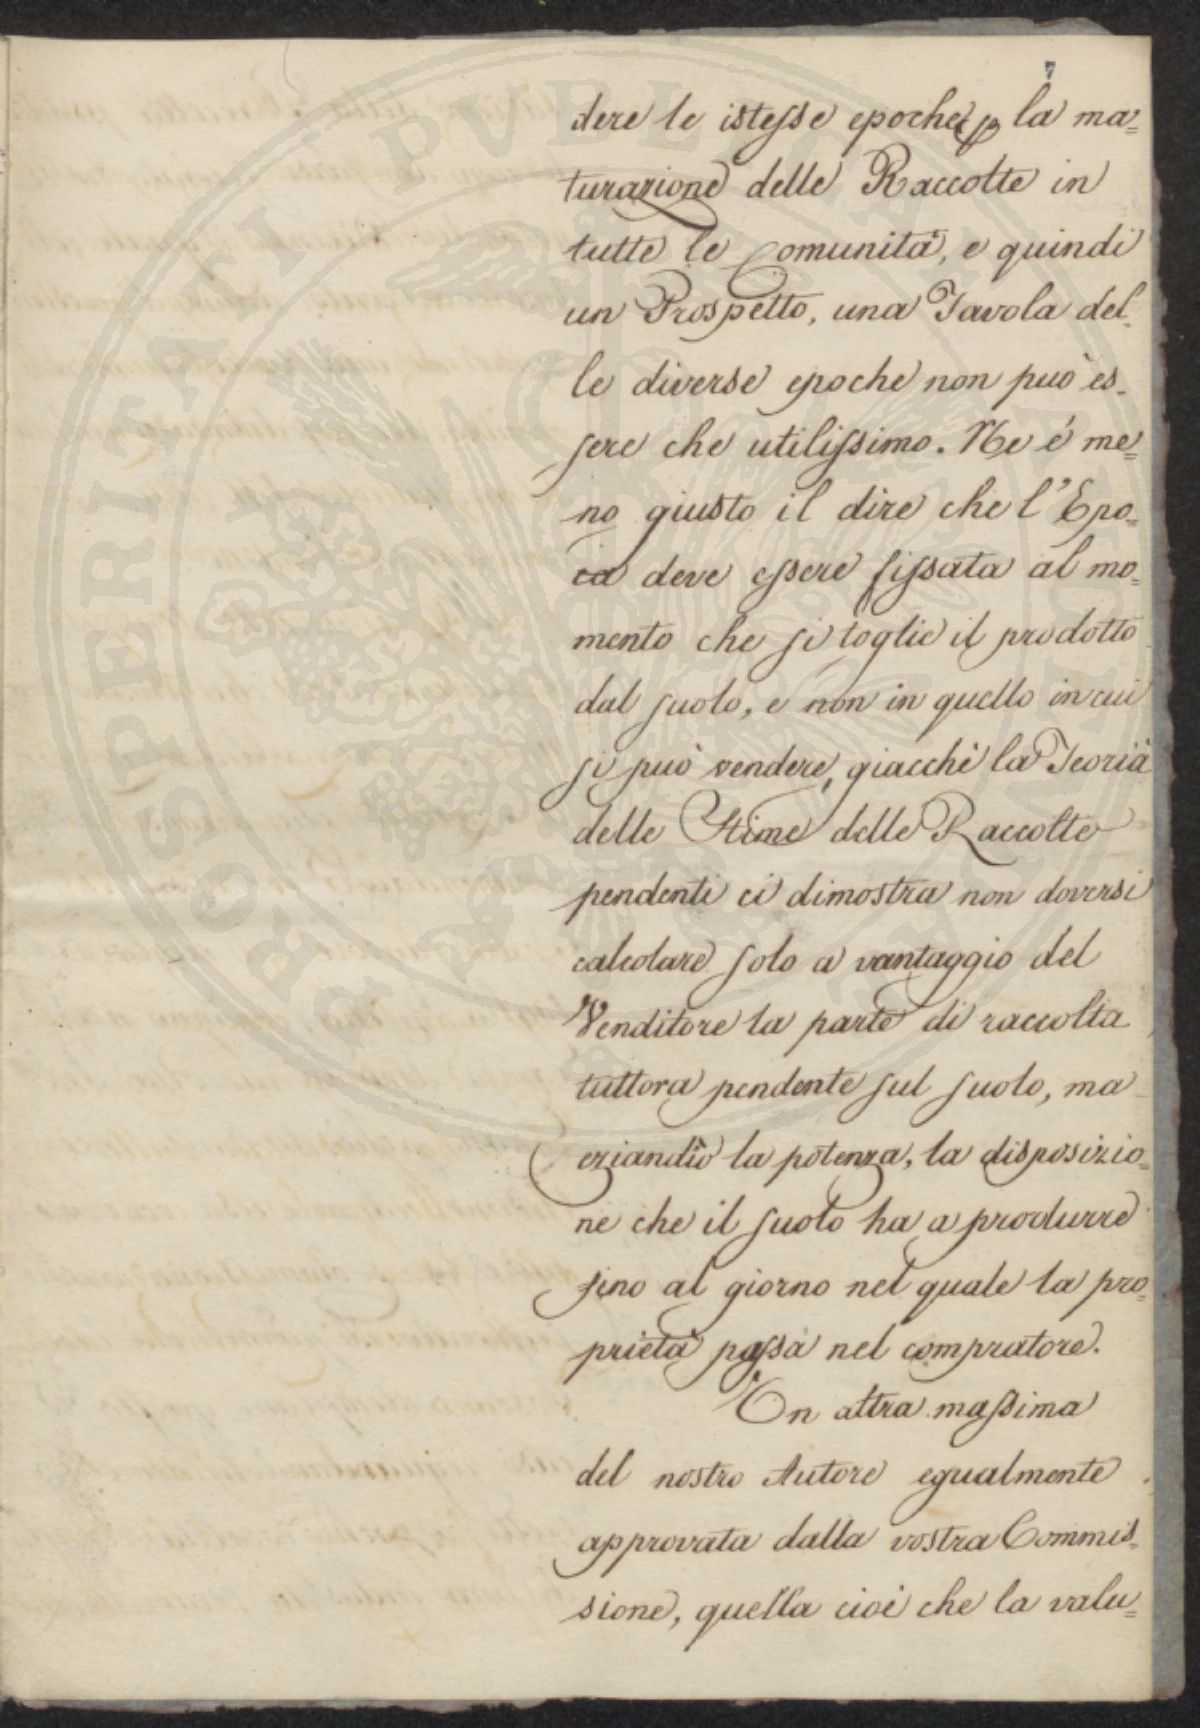 7
dere le istesse epoche p la ma=
turazione delle Raccolte in
tutte le Comunità, e quindi
un Prospetto, una Tavola del=
le diverse epoche non può es=
sere che utilissimo. Ne é me=
no giusto il dire che l'Epo=
ca deve essere fissata al mo=
mento che si toglie il prodotto
dal suolo, e non in quello in cui
si può vendere, giacchè la Teoria
delle Stime delle Raccolte
pendenti ci dimostra non doversi
calcolare solo a vantaggio del
Venditore la parte di raccolta
tuttora pendente sul suolo, ma
eziandio la potenza, la disposizio=
ne che il suolo ha a produrre
fino al giorno nel quale la pro=
prietà passa nel compratore.
Un altra massima
del nostro Autore egualmente
approvata dalla vostra Commis=
sione, quella cioè che la valu=
PROSPERITATI PUBLICAE